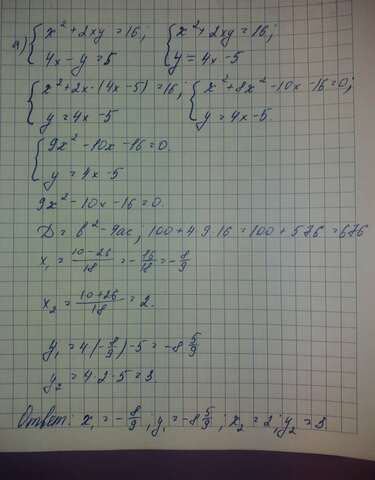 а) { x² + 2xy = 16; { x² + 2xy = 16;
4x - y = 5 y = 4x - 5
{ x² + 2x·(4x - 5) = 16; { x² + 8x² - 10x - 16 = 0;
y = 4x - 5 y = 4x - 5.
{ 9x² - 10x - 16 = 0.
y = 4x - 5
9x² - 10x - 16 = 0.
D = b² - 4ac; 100 + 4·9·16 = 100 + 576 = 676
x₁ = (10 - 26)/18 = - 16/18 = - 8/9
x₂ = (10 + 26)/18 = 2.
y₁ = 4·(- 8/9) - 5 = - 8 5/9
y₂ = 4·2 - 5 = 3.
Ответ: x₁ = - 8/9; y₁ = - 8 5/9; x₂ = 2; y₂ = 3.